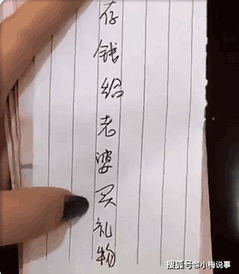 存钱给老婆买礼物
搜狐号@小梅说事